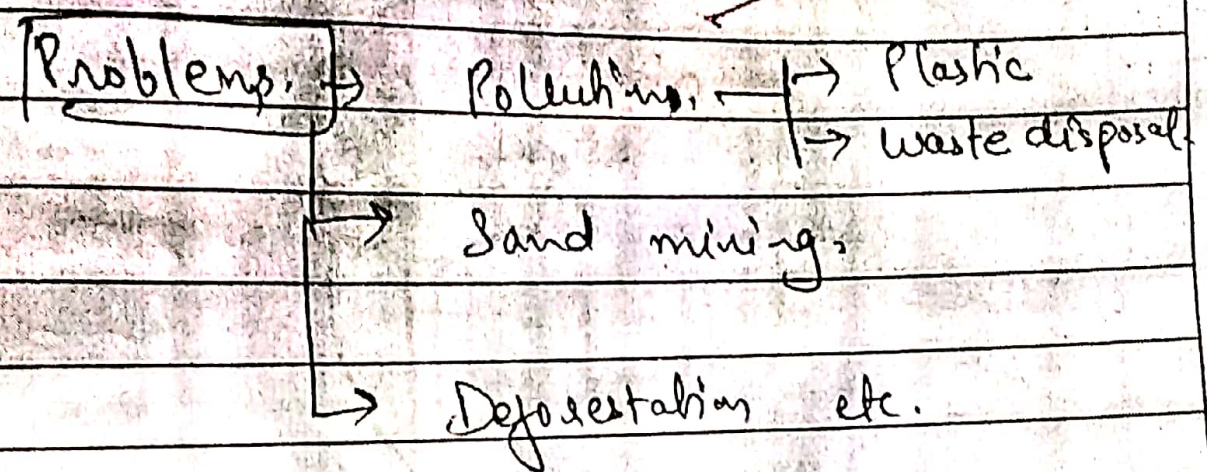 Problems. → Pollutions. → Plastic
→ waste disposal.
→ Sand mining.
→ Deforestation etc.